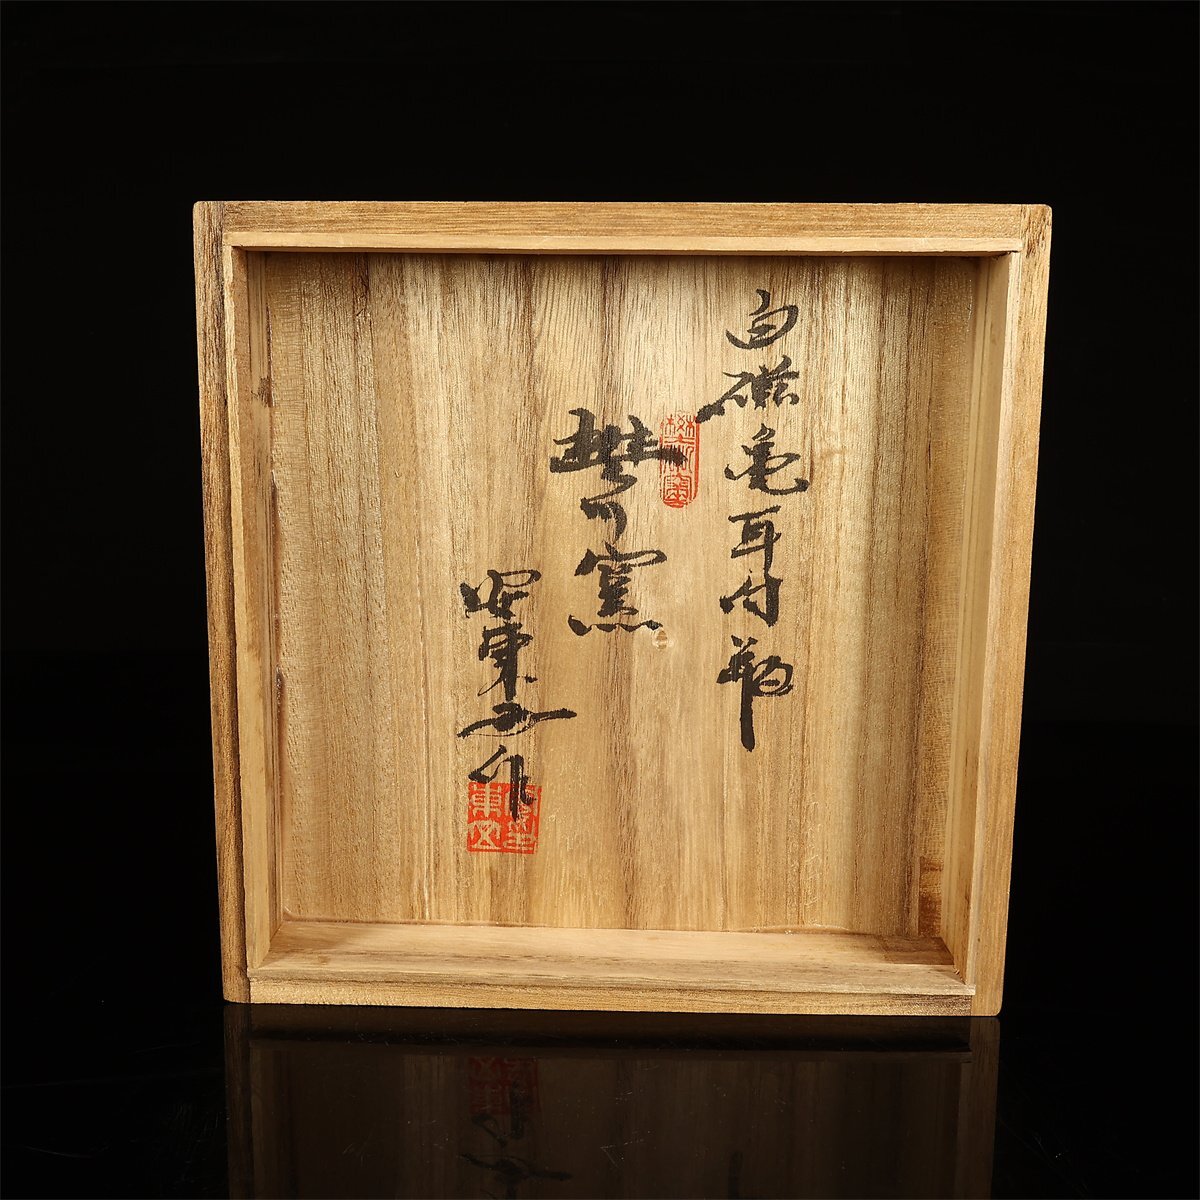 白磁亀耳付瓶
樊川窯
安東五作